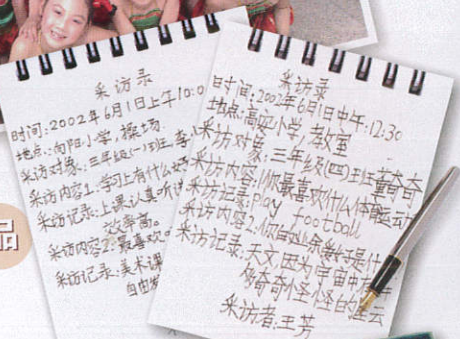 采访录
时间:2002年6月1日上午10:0
地点:向阳小学,操场
采访对象:三年级(一)班李小
采访内容1:学习上有什么好
采访记录:上课认真听讲
效率高。
采访内容2:最喜欢
采访记录:美术课
自由发
采访录
时间:2002年6月1日中午:12:30
地点:高安小学,教室
采访对象:三年级(四)班董奇奇
采访内容:1你最喜欢什么体育运动
采访记录:play football
采访内容2:你的业余爱好是什
采访记录:天文,因为宇宙中有许
多奇奇怪怪的星云
采访者:王芳
品